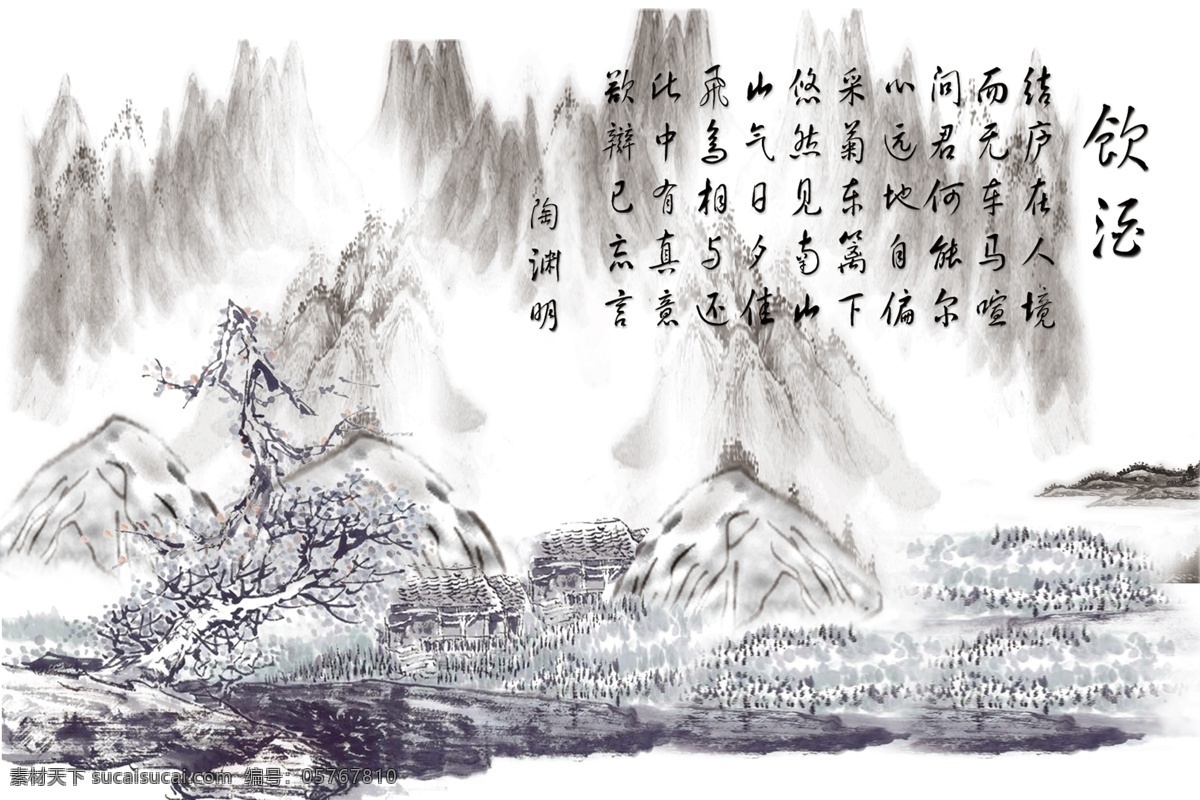 饮酒
结庐在人境
而无车马喧
问君何能尔
心远地自偏
采菊东篱下
悠然见南山
山气日夕佳
飛鸟相与还
此中有真意
欲辩已忘言
陶渊明
素材天下 sucaisucai.com 编号：05767810